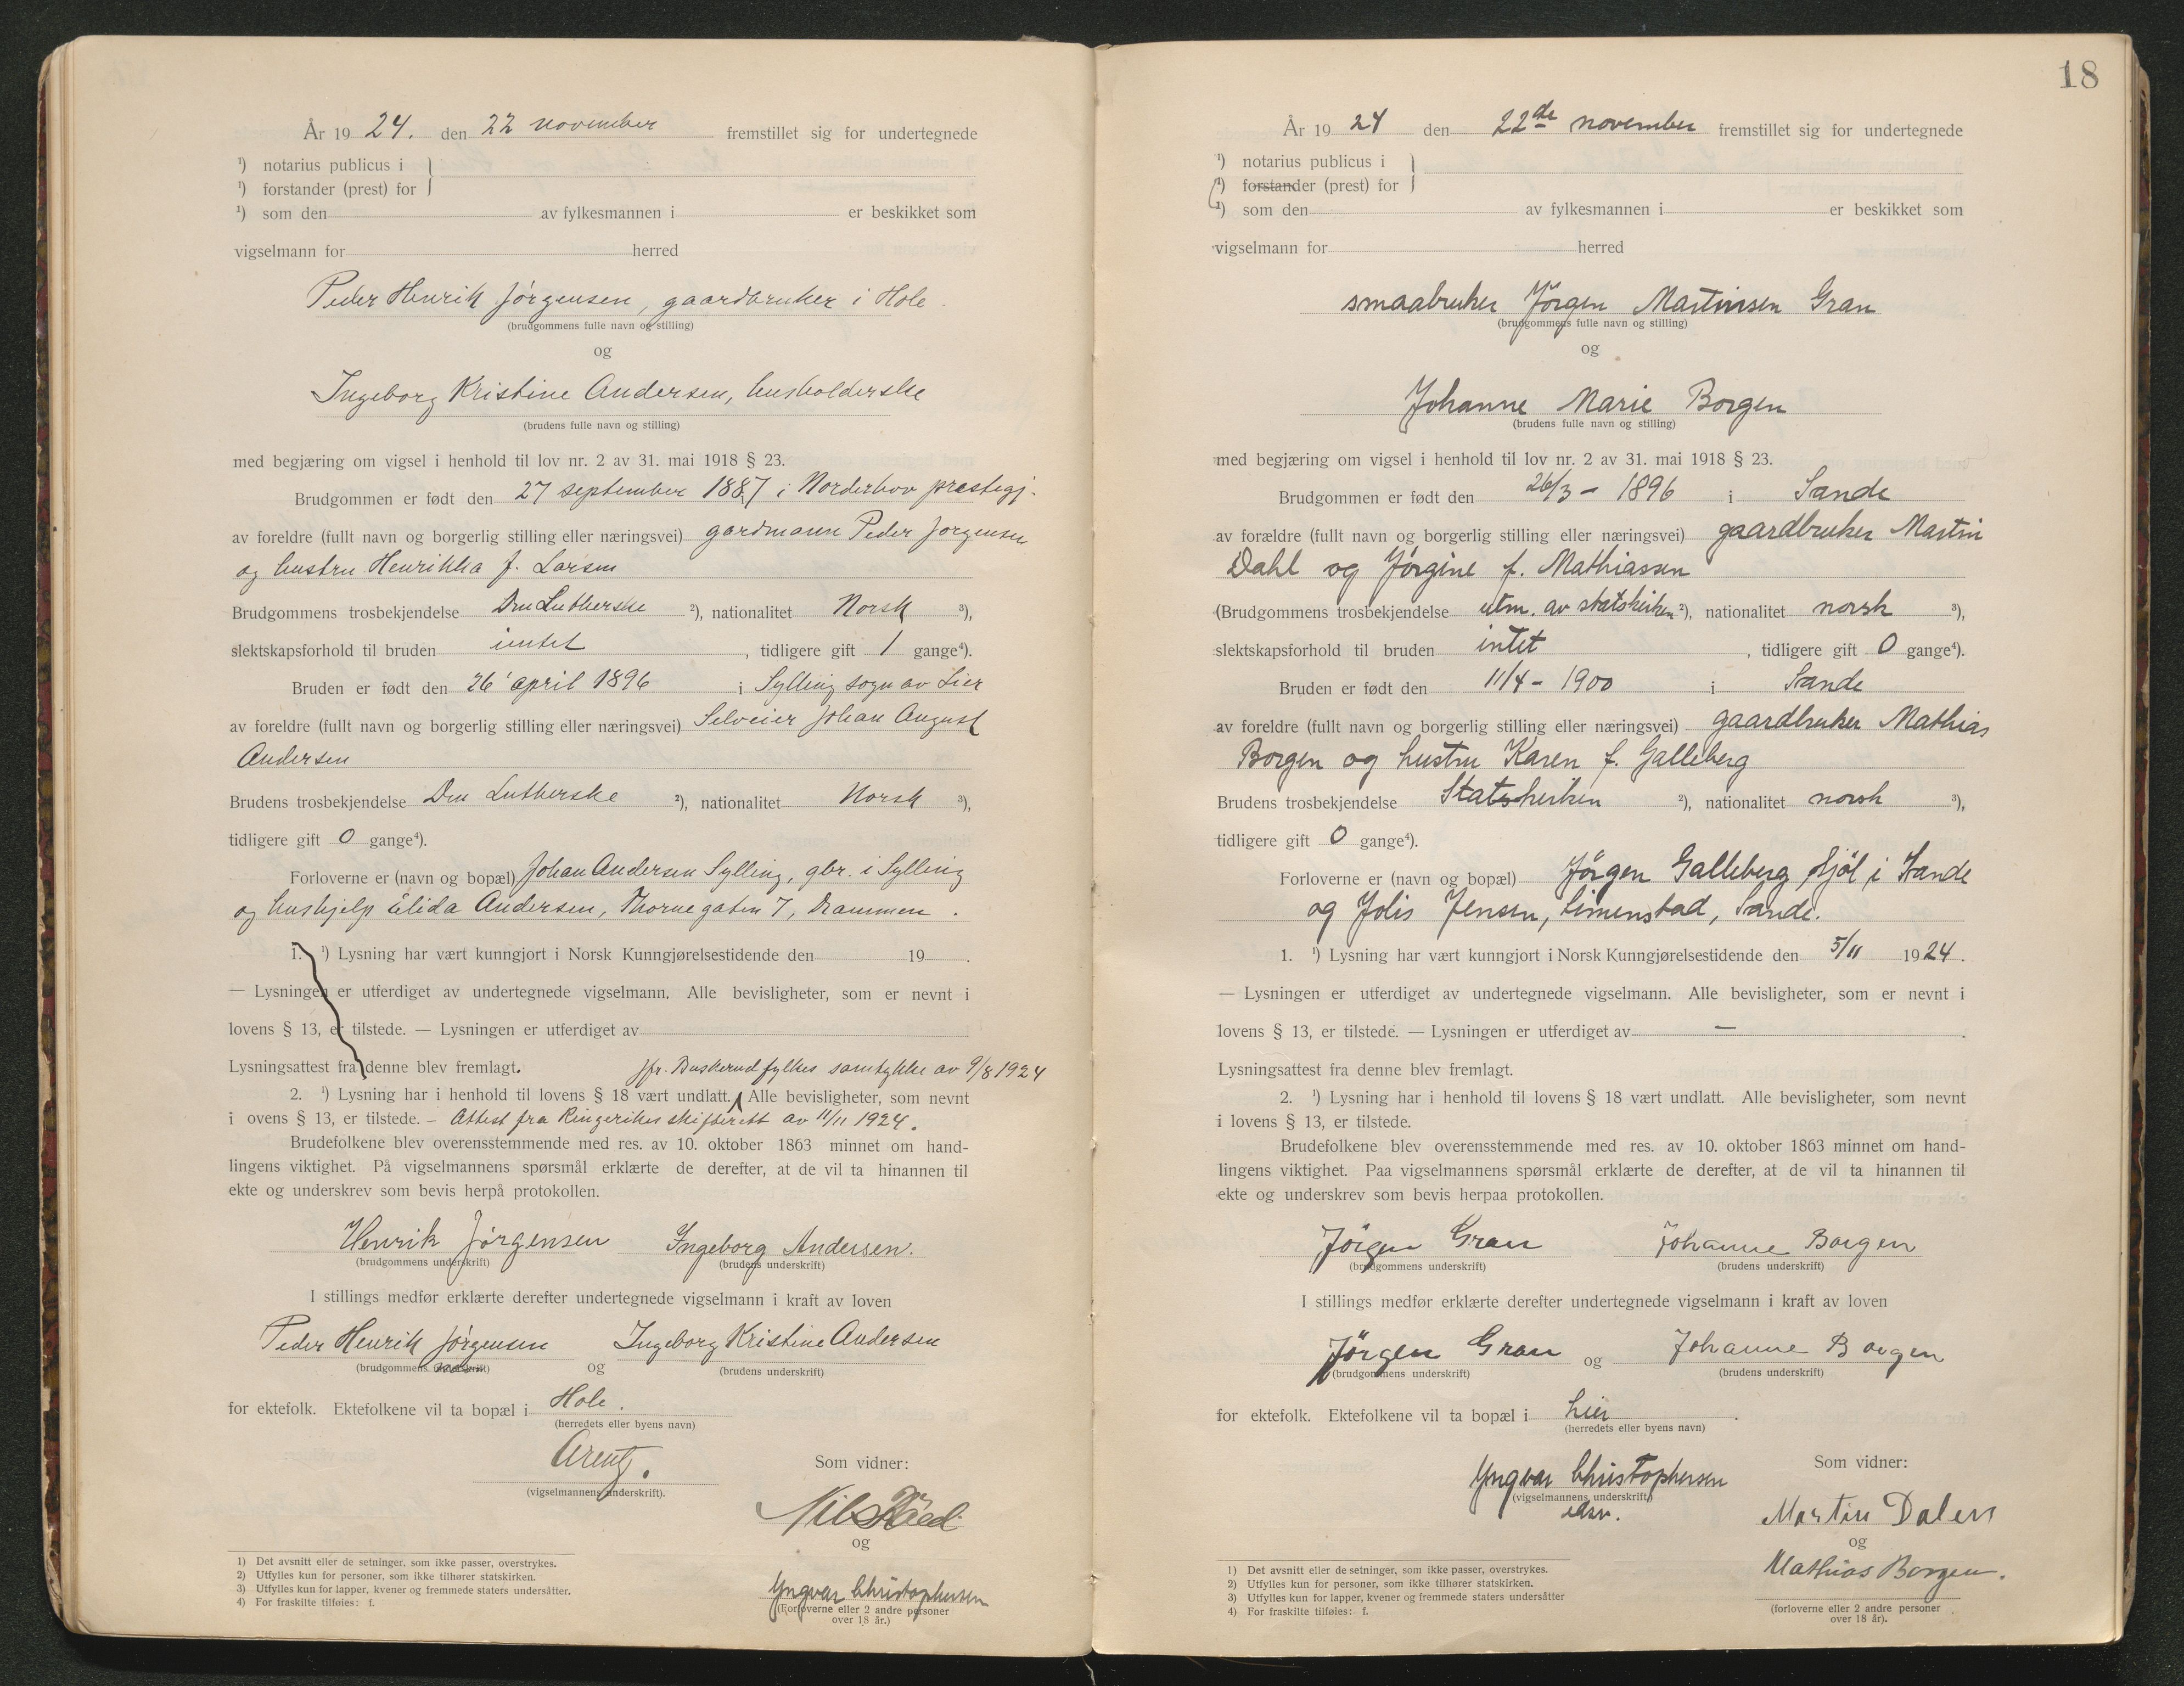 År 19 24. den 22 november fremstillet sig for undertegnede
¹) notarius publicus i
¹) forstander (prest) for
¹) som den av fylkesmannen i er beskikket som
vigselmann for herred
Peder Henrik Jørgensen, gaardbruker i Hole.
(brudgommens fulle navn og stilling)
og
Ingeborg Kristine Andersen, husholderske
(brudens fulle navn og stilling)
med begjæring om vigsel i henhold til lov nr. 2 av 31. mai 1918 § 23.
Brudgommen er født den 27 september 1887 i Norderhov prestegj.
av foreldre (fullt navn og borgerlig stilling eller næringsvei) gardmann Peder Jørgensen
og hustru Henrikka f. Larsen
Brudgommens trosbekjendelse Den Lutherske ²), nationalitet Norsk ³),
slektskapsforhold til bruden intet, tidligere gift 1 gange⁴).
Bruden er født den 26 april 1896 i Sylling sogn av Lier
av foreldre (fullt navn og borgerlig stilling eller næringsvei) Selveier Johan August
Andersen
Brudens trosbekjendelse Den Lutherske ²), nationalitet Norsk ³),
tidligere gift 0 gange⁴).
Forloverne er (navn og bopæl) Johan Andersen Sylling, gbr. i Sylling
og hushjelp Elida Andersen, Thornegaten 7, Drammen.
1. ¹) Lysning har vært kunngjort i Norsk Kunngjørelsestidende den 19 .
— Lysningen er utferdiget av undertegnede vigselmann. Alle bevisligheter, som er nevnt i
lovens § 13, er tilstede. — Lysningen er utferdiget av
Lysningsattest fra denne blev fremlagt. jfr. Buskerud fylkes samtykke av 9/8 1924
2. ¹) Lysning har i henhold til lovens § 18 vært undlatt. Alle bevisligheter, som nevnt
i ovens § 13, er tilstede. – Attest fra Ringerikes skifterett av 11/11 1924.
Brudefolkene blev overensstemmende med res. av 10. oktober 1863 minnet om hand-
lingens viktighet. På vigselmannens spørsmål erklærte de derefter, at de vil ta hinannen til
ekte og underskrev som bevis herpå protokollen.
Henrik Jørgensen Ingeborg Andersen.
(brudgommens underskrift) (brudens underskrift)
I stillings medfør erklærte derefter undertegnede vigselmann i kraft av loven
Peder Henrik Jørgensen og Ingeborg Kristine Andersen
(brudgommens underskrift) (brudens underskrift)
for ektefolk. Ektefolkene vil ta bopæl i Hole.
(herredets eller byens navn)
Arentz.
(vigselmannens underskrift).
Som vidner:
Nils
og
Yngvar Christophersen
(Forloverne eller 2 andre personer
over 18 år.)
1) Det avsnitt eller de setninger, som ikke passer, overstrykes.
2) Utfylles kun for personer, som ikke tilhører statskirken.
3) Utfylles kun for lapper, kvener og fremmede staters undersåtter.
4) For fraskilte tilføies: f.
18
År 19 24 den 22de november fremstillet sig for undertegnede
¹) notarius publicus i
¹) forstander (prest) for
¹) som den av fylkesmannen i er beskikket som
vigselmann for herred
smaabruker Jörgen Martinsen Gran
(brudgommens fulle navn og stilling)
og
Johanne Marie Borgen
(brudens fulle navn og stilling)
med begjæring om vigsel i henhold til lov nr. 2 av 31. mai 1918 § 23.
Brudgommen er født den 26/3 – 1896 i Sande
av forældre (fullt navn og borgerlig stilling eller næringsvei) gaardbruker Martin
Dahl og Jørgine f. Mathiassen
(Brudgommens trosbekjendelse utm. av statskirken ²), nationalitet norsk ³),
slektskapsforhold til bruden intet, tidligere gift 0 gange⁴).
Bruden er født den 11/4 – 1900 i Sande
av foreldre (fullt navn og borgerlig stilling eller næringsvei) gaardbruker Mathias
Borgen og hustru Karen f. Galleberg
Brudens trosbekjendelse Statskirken ²), nationalitet norsk ³),
tidligere gift 0 gange⁴).
Forloverne er (navn og bopæl) Jörgen Galleberg, i Sande
og Jolis Jensen, Sande.
1. ¹) Lysning har vært kunngjort i Norsk Kunngjørelsestidende den 5/11 1924.
— Lysningen er utferdiget av undertegnede vigselmann. Alle bevisligheter, som er nevnt i
lovens § 13, er tilstede. — Lysningen er utferdiget av — .
Lysningsattest fra denne blev fremlagt.
2. ¹) Lysning har i henhold til lovens § 18 vært undlatt. Alle bevisligheter, som nevnt
i lovens § 13, er tilstede.
Brudefolkene blev overensstemmende med res. av 10. oktober 1863 minnet om hand-
lingens viktighet. Paa vigselmannens spørsmål erklærte de derefter, at de vil ta hinannen til
ekte og underskrev som bevis herpaa protokollen.
Jörgen Gran Johanne Borgen
(brudgommens underskrift) (brudens underskrift)
I stillings medfør erklærte derefter undertegnede vigselmann i kraft av loven
Jörgen Gran og Johanne Borgen
(brudgommens underskrift) (brudens underskrift)
for ektefolk. Ektefolkene vil ta bopæl i Lier.
(herredets eller byens navn)
Yngvar Christophersen
(vigselmannens underskrift)
Som vidner:
Martin Dalen
og
Mathias Borgen.
(forloverne eller 2 andre personer
over 18 år).
1) Det avsnitt eller de setninger, som ikke passer, overstrykes.
2) Utfylles kun for personer, som ikke tilhører statskirken.
3) Utfylles kun for lapper, kvener og fremmede staters undersåtter
4) For fraskilte tilføies: f.